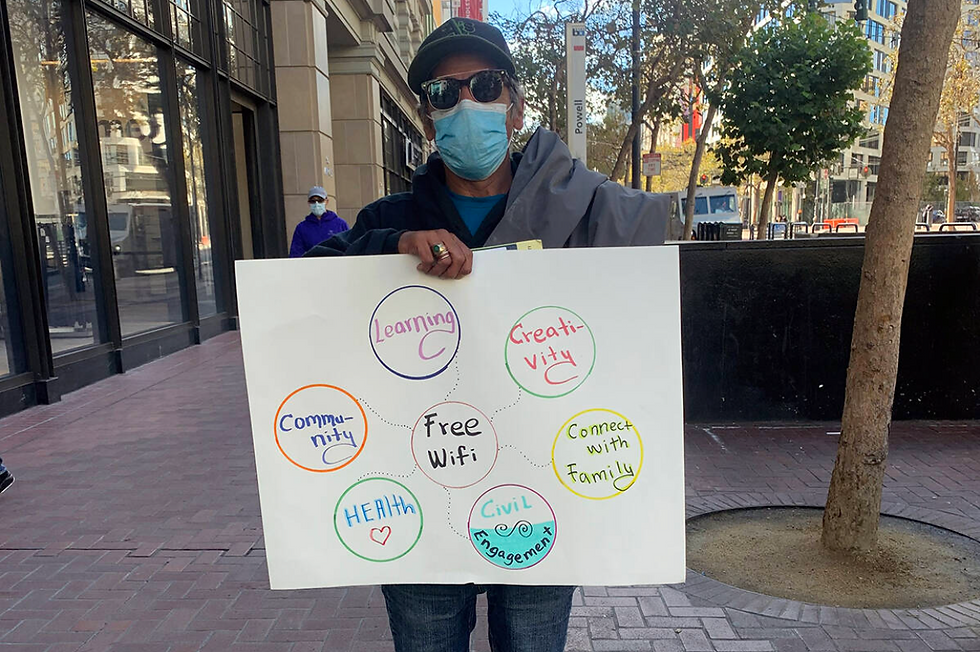 Powell
Learning
Creati-
vity
Commu-
nity
Free
Wifi
Connect
with
Family
HEALth
Civil
Engagement